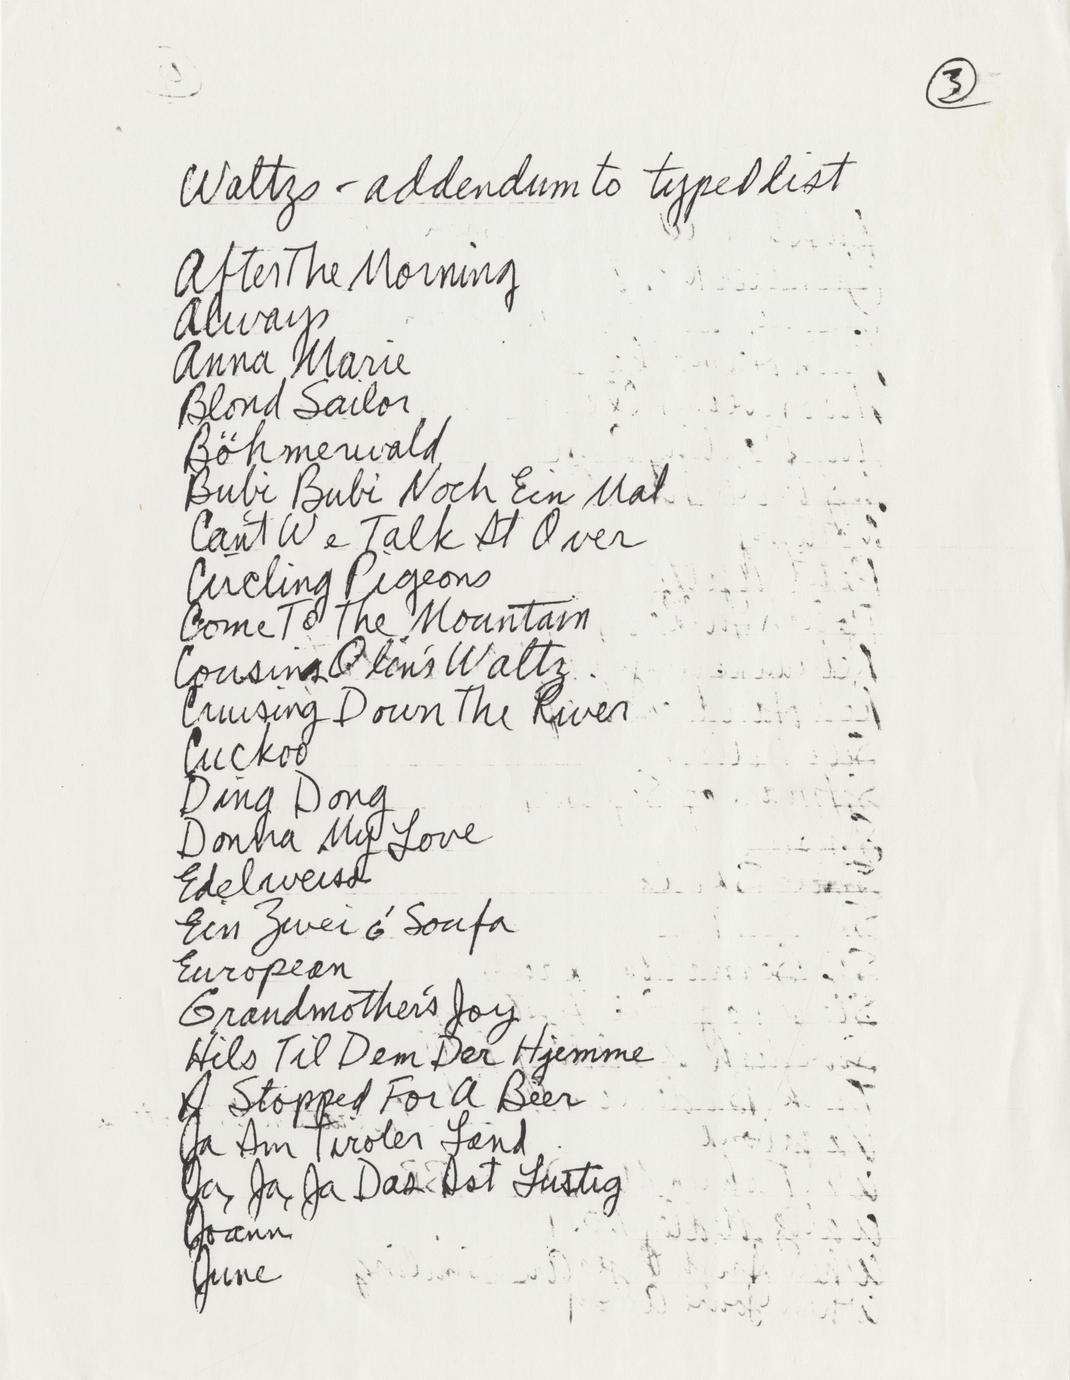 3
Waltzs - addendum to typed list
After The Morning
Always
Anna Marie
Blond Sailor
Böhmerwald
Bubi Bubi Noch Ein Mal
Can't We Talk It Over
Circling Pigeons
Come To The Mountain
Cousins Olin's Waltz
Cruising Down The River
Cuckoo
Ding Dong
Donna My Love
Edelweiss
Ein Zwei G' Soufa
European
Grandmother's Joy
Hils Til Dem Der Hjemme
I Stopped For A Beer
Ja Im Tiroler Land
Ja, Ja, Ja Das Ist Lustig
Joann
June